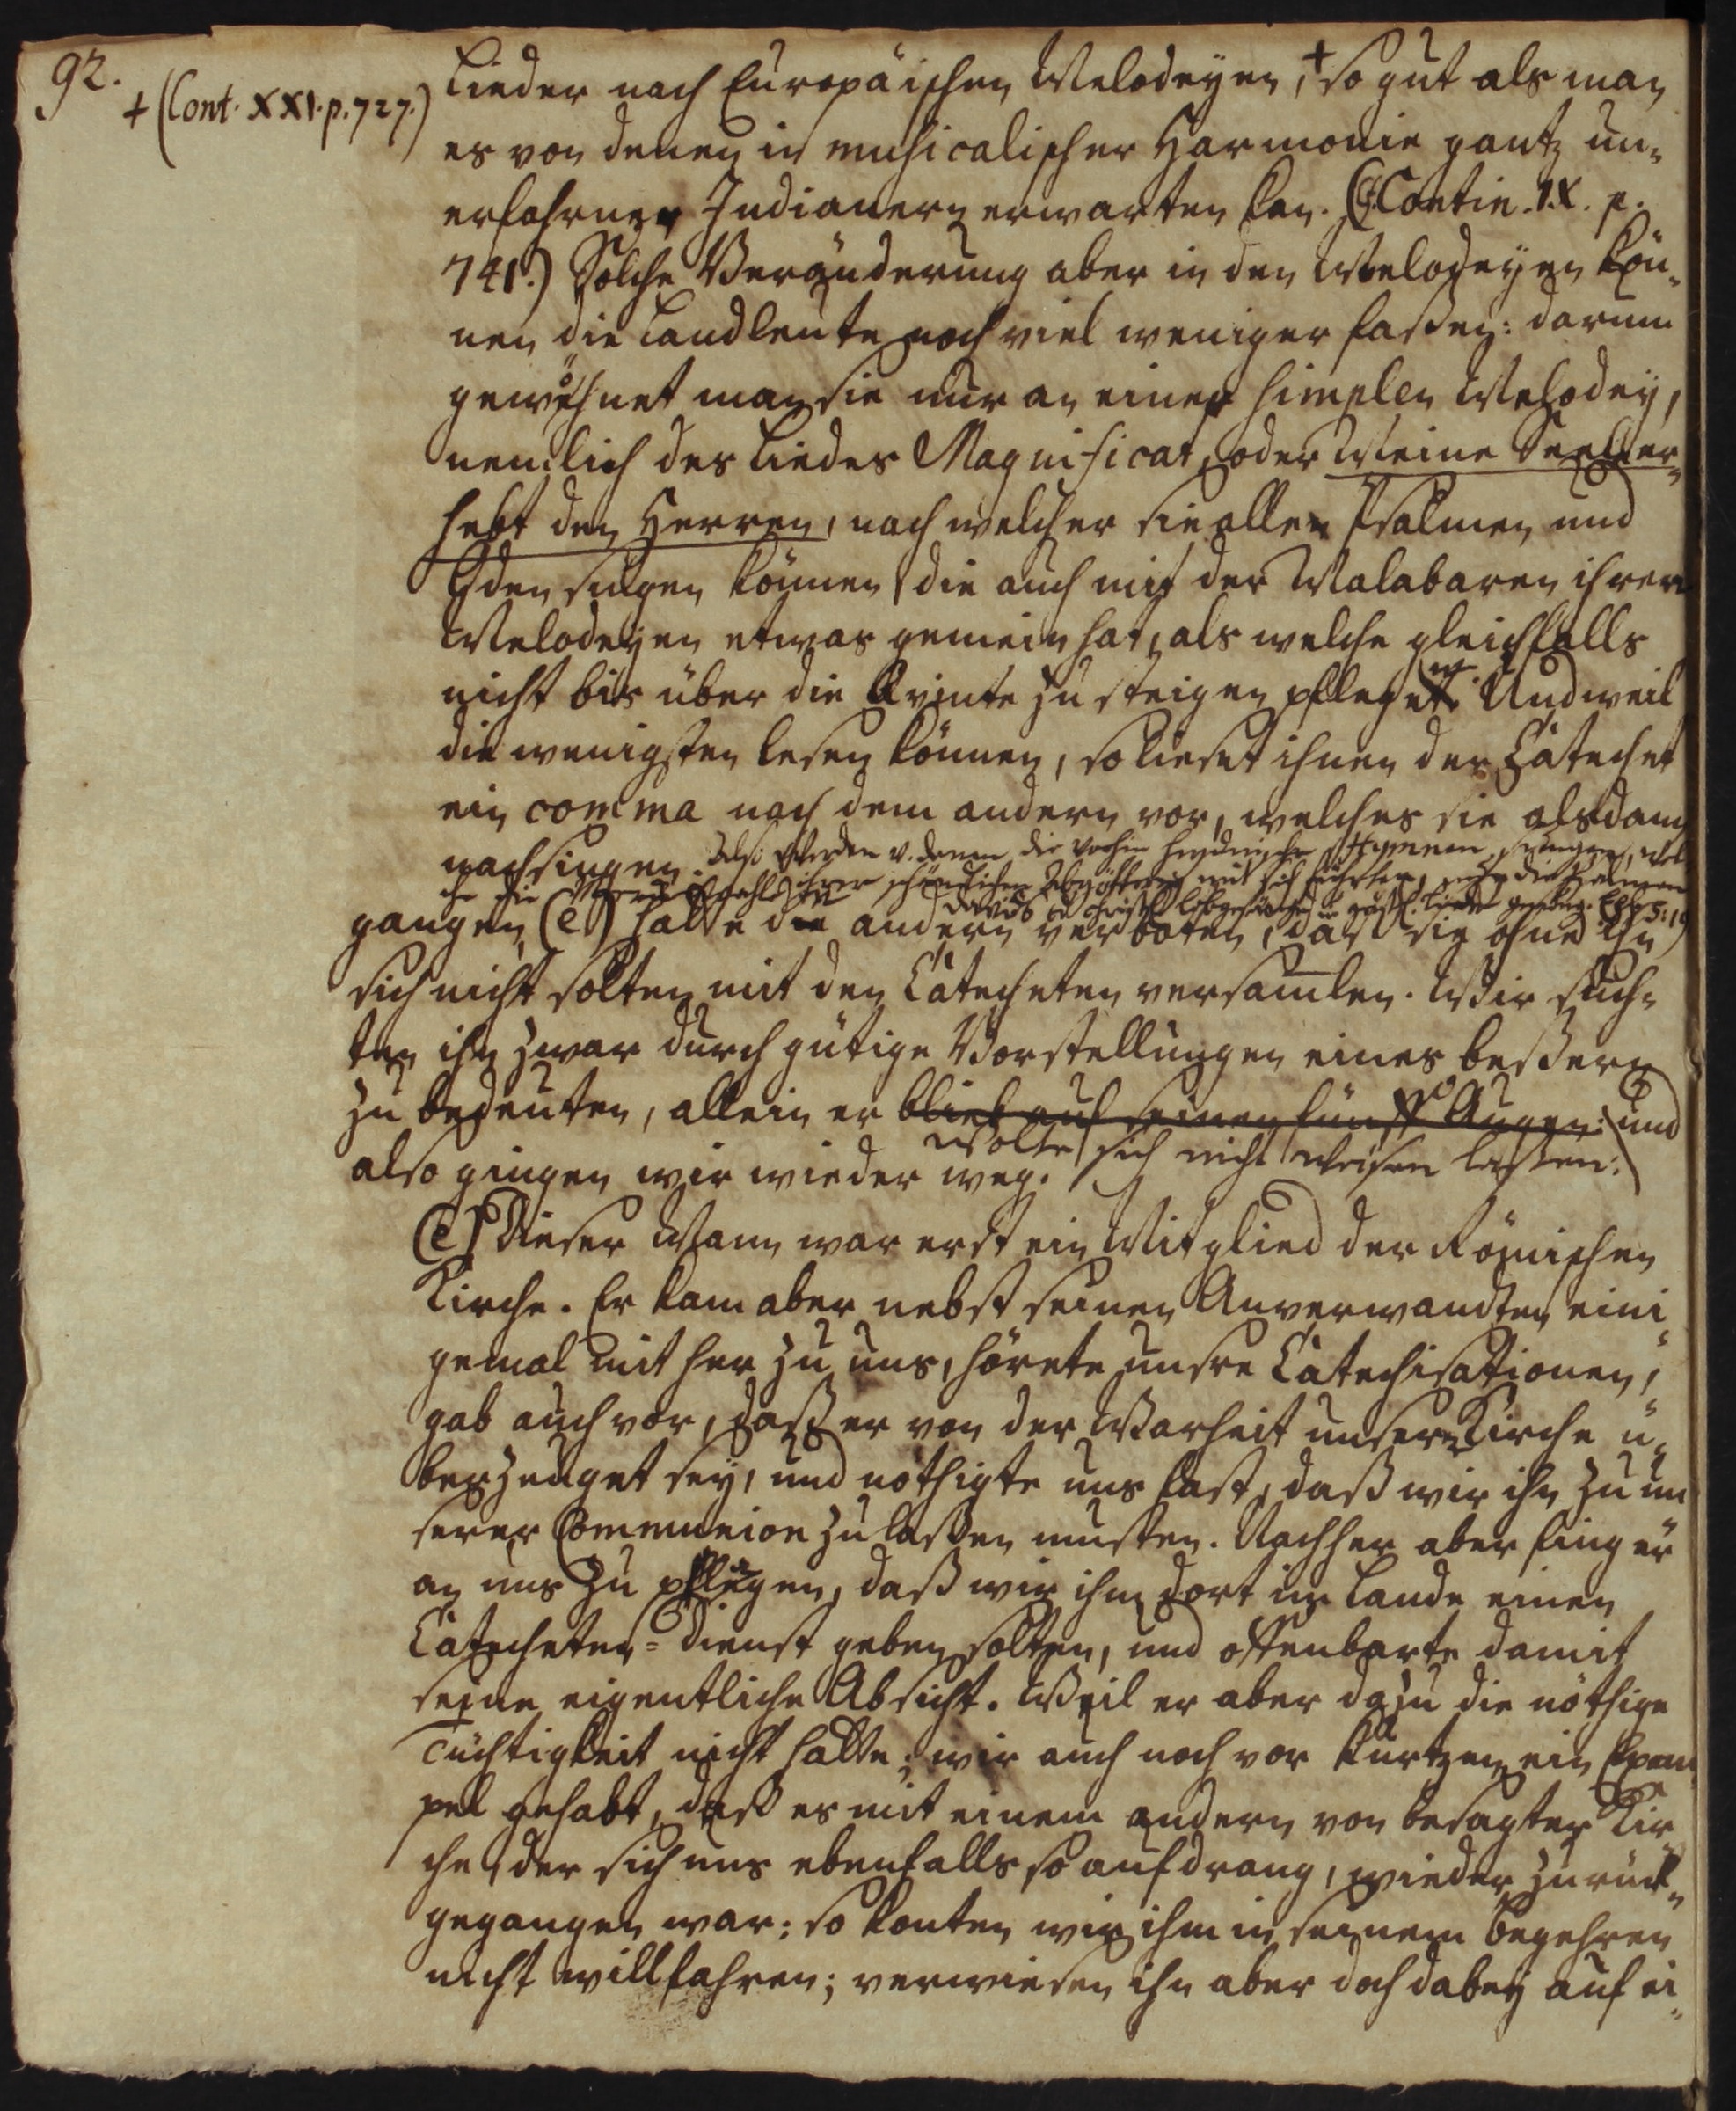 92.
+ (Cont. XXI. p. 727.)
Lieder nach Europäischen Melodeyen, + so gut als man
es von denen in musicalischer Harmonie gantz un-
erfahrnen Indianern erwarten kan. (Contin. IX. p.
741.) Solche Veränderung aber in den Melodeyen kön-
nen die Landleute noch viel weniger faßen: darum
gewöhnet man sie nur an einer simplen Melodey,
nemlich des Liedes Magnificat, oder Meine Seele er-
hebt den Herren, nach welcher sie alle Psalmen und
Oden singen können, die auch mit der Malabaren ihren
Melodeyen etwas gemein hat, als welche gleichfalls
nicht bis über die Qvinte zu steigen pflegen. Und weil
die wenigsten lesen können, so lieset ihnen der Catechet
ein comma nach dem andern vor, welches sie alsdann
nachsingen. Also werden v. denen die vorhin heydnische Hymnen sungen, wel-
che die ihrer schändlichen Abgötterey mit sich führten, nun die Psalmen
Davids u. christl. Lobgesänge u. geistl. Lieder gesung. Eph. 5:19
gangen (e) hatte die andern verboten, daß sie ohne ihn
sich nicht solten mit den Catecheten versamlen. Wir such-
ten ihn zwar durch gütige Vorstellungen eines beßern
zu bedeuten, allein er blieb auf seinen fünff Augen: und
wolte sich nicht weisen laßen:
also gingen wir wieder weg.
(e) Dieser Mann war erst ein Mitglied der Römischen
Kirche. Er kam aber nebst seinen Anverwandten eini-
gemal mit her zu uns, hörete unsre Catechisationen,
gab auch vor, daß er von der Warheit unserer Kirche ü-
berzeuget sey, und nöthigte uns fast, daß wir ihn zu un-
serer Communion zulaßen musten. Nachher aber fing er
an uns zu plagen, daß wir ihm dort im Lande einen
Catecheten-Dienst geben solten, und offenbarte damit
seine eigentliche Absicht. Weil er aber dazu die nöthige
Tüchtigkeit nicht hatte; wir auch noch vor kurtzen ein Exem-
pel gehabt, daß es mit einem andern von besagter Kir-
che, der sich uns ebenfalls so aufdrang, wieder zurück-
gegangen war: so konten wir ihm in seinem Begehren
nicht willfahren; verwiesen ihn aber doch dabey auf ei-